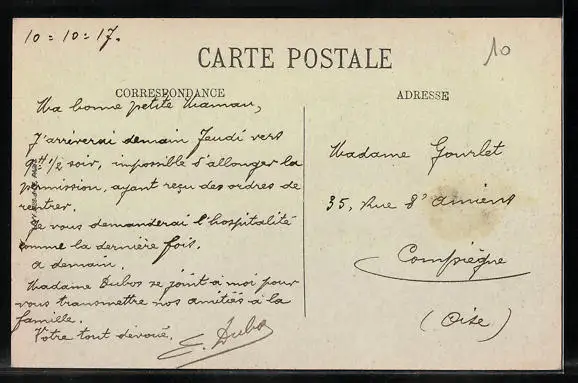 10=10=17.
10
CARTE POSTALE
CORRESPONDANCE
ADRESSE
Ma bonne petite Maman,
J'arriverai demain Jeudi vers
9H 1/2 soir, impossible d'allonger la
permission, ayant reçu des ordres de
rentrer.
Je vous demanderai l'hospitalité
comme la dernière fois.
A demain.
Madame Dubos se joint à moi pour
vous transmettre nos amitiés à la
famille.
Votre tout dévoué.
E. Dubos
Madame Gourlet
35, Rue d'Amiens
Compiègne
(Oise)